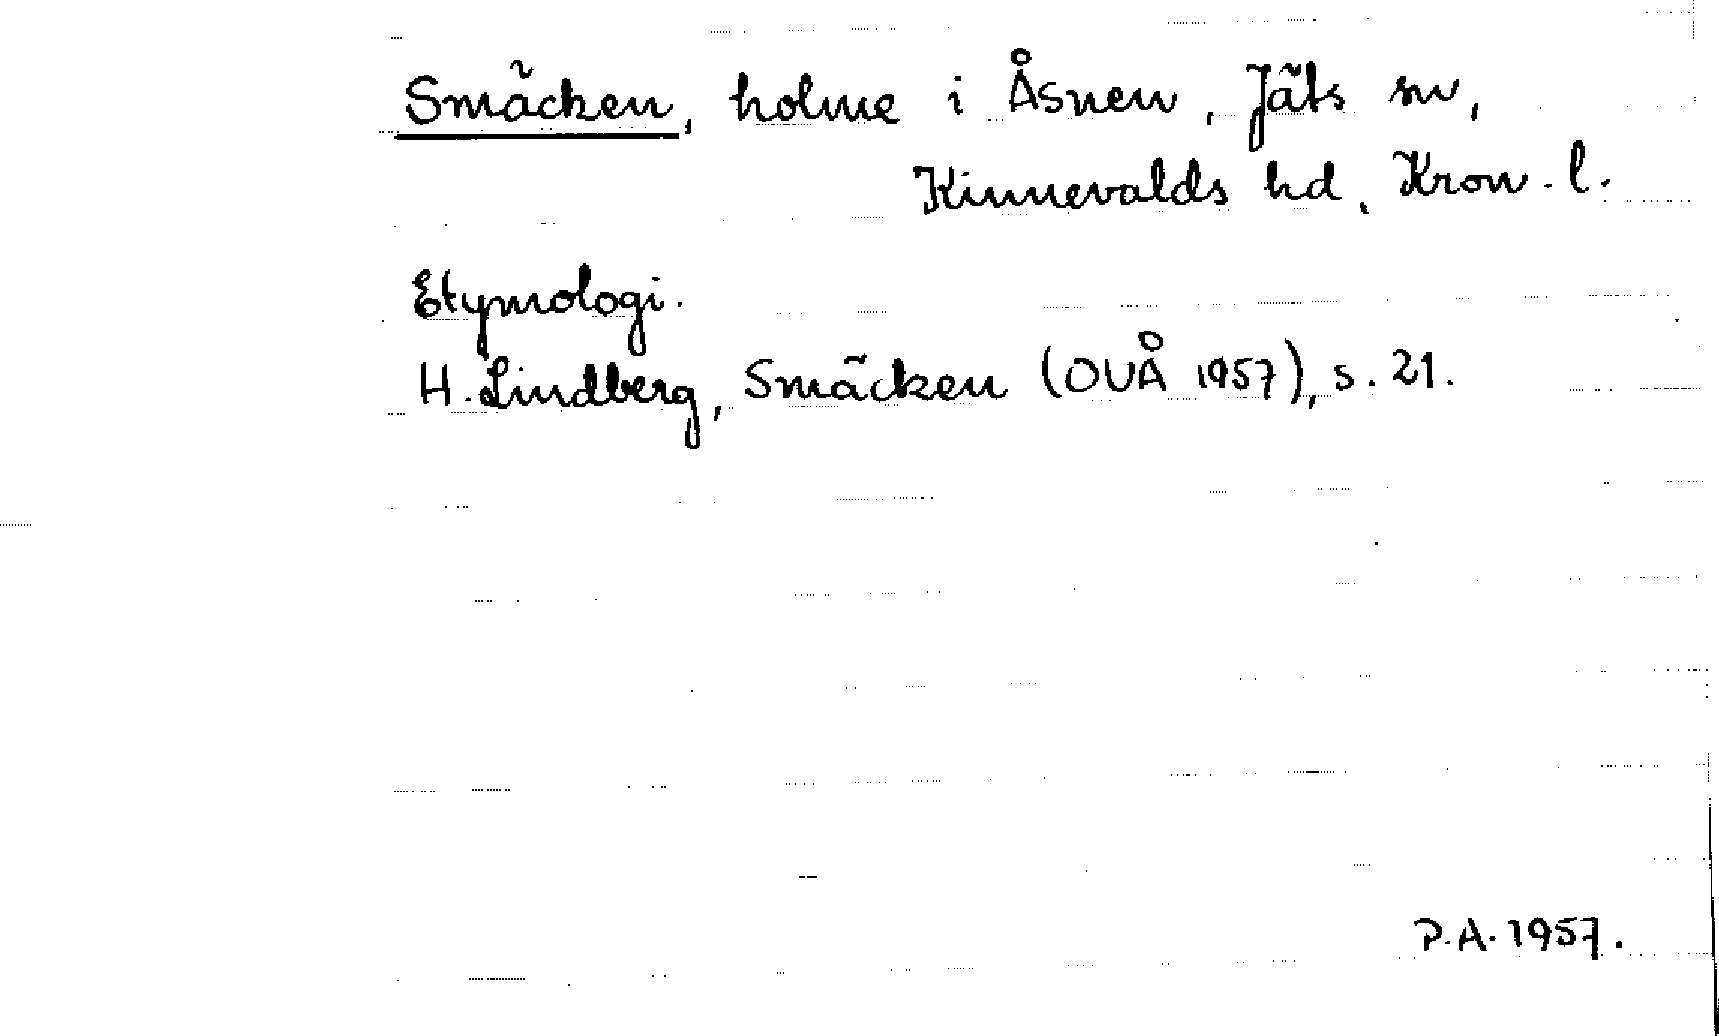 Smäcken, holme i Åsnen, Jäts sn,
Kinnevalds hd, Kron. l.
Etymologi.
H. Lindberg, Smäcken (OUÅ 1957), s. 21.
P.A. 1957.